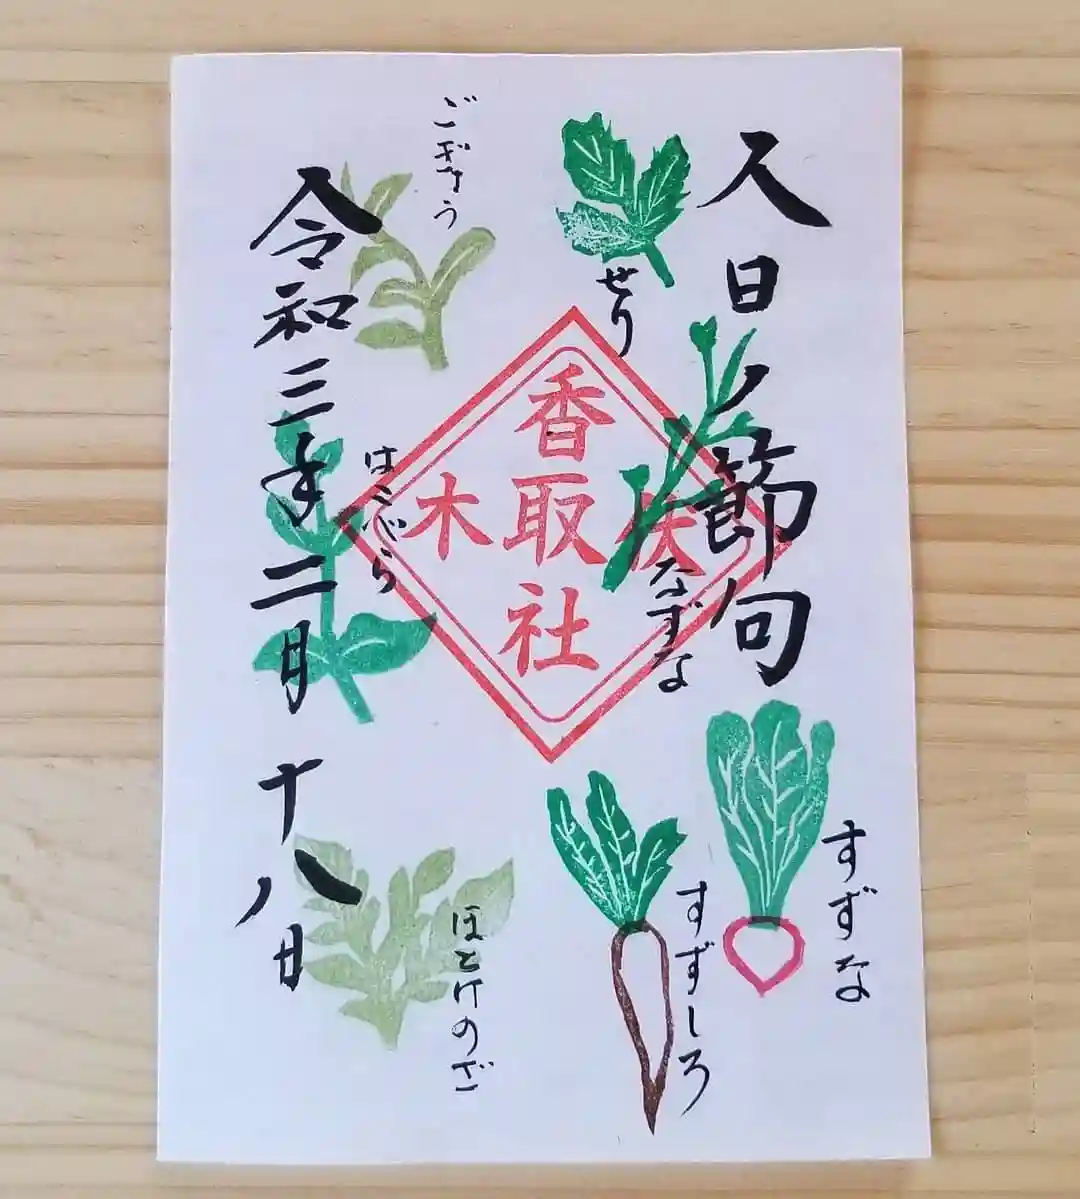 人日ノ節句
せり
なずな
香取社
木
すずな
すずしろ
ごぎょう
はこべら
ほとけのざ
令和三年二月十八日